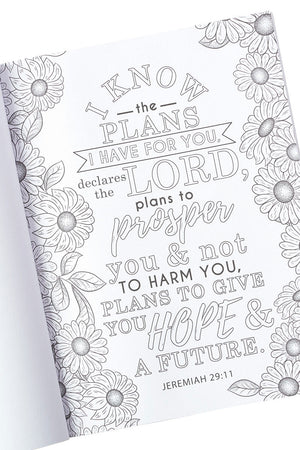 I KNOW
the
PLANS
I HAVE FOR YOU,
declares
the LORD,
plans to
prosper
you & not
TO HARM YOU,
PLANS TO GIVE
YOU HOPE &
A FUTURE.
JEREMIAH 29:11